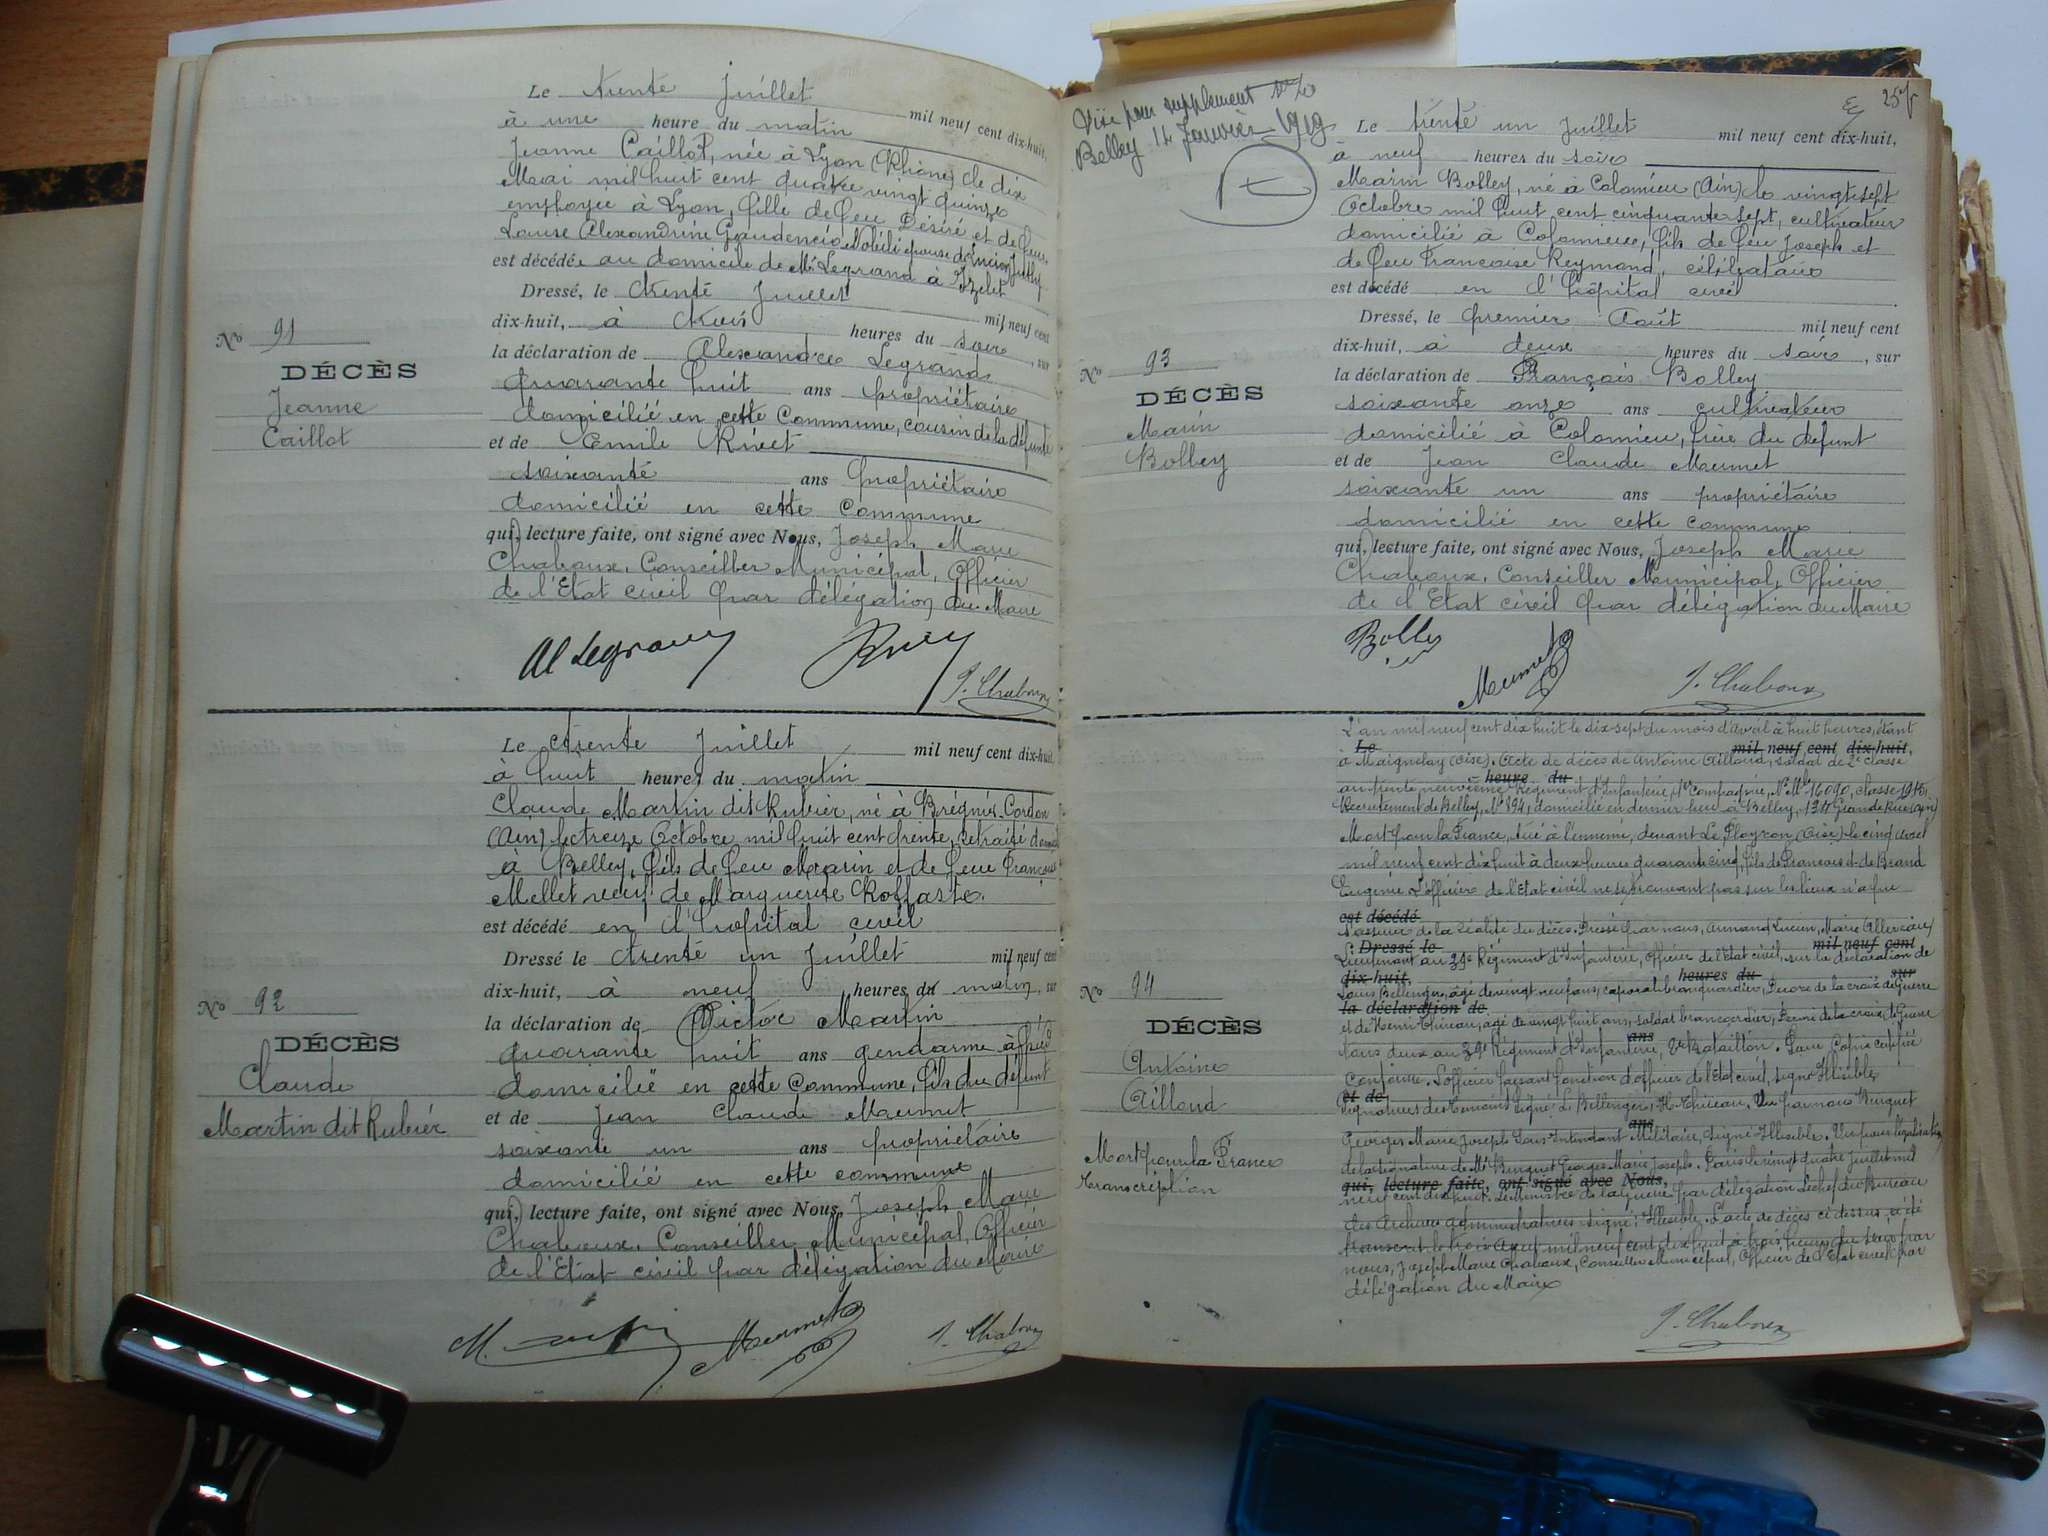 Le trente Juillet mil neuf cent dix-huit,
à une heure du matin
Jeanne Caillot, née à Lyon (Rhône) le dix
Mai mil huit cent quatre vingt quinze
employée à Lyon, fille de feu Désiré et de feue
Louise Alexandrine Gaudencio épouse de Lucien
est décédée au domicile de Mr Legrand à
Dressé, le trente Juillet mil neuf cent
dix-huit, à trois heures du soir, sur
la déclaration de Alexandre Legrand
quarante huit ans propriétaire
domicilié en cette Commune, cousin de la défunte
et de Emile Rivet
soixante ans propriétaire
domicilié en cette Commune
qui, lecture faite, ont signé avec Nous, Joseph Marie
Chaboux, Conseiller Municipal, Officier
de l'Etat civil par délégation du Maire
Al Legrand
J. Chaboux
No 91
DÉCÈS
Jeanne
Caillot
Le trente Juillet mil neuf cent dix-huit
à huit heures du matin
Claude Martin dit Rubier, né à Brégnier-Cordon
(Ain) le treize Octobre mil huit cent trente, retraité
à Belley, fils de feu Marin et de feue Françoise
Mellet veuf de Marguerite
est décédé en l'hôpital civil
Dressé le trente un Juillet mil neuf cent
dix-huit, à neuf heures du matin, sur
la déclaration de Victor Martin
quarante huit ans gendarme à pied
domicilié en cette Commune, fils du défunt
et de Jean Claude Meumet
soixante un ans propriétaire
domicilié en cette commune
qui, lecture faite, ont signé avec Nous, Joseph Marie
Chaboux, Conseiller Municipal, Officier
de l'Etat civil par délégation du Maire
Meumet
J. Chaboux
No 92
DÉCÈS
Claude
Martin dit Rubier
Visé pour supplement
Belley 14 Janvier 1919
Le trente un Juillet mil neuf cent dix-huit,
à neuf heures du soir
Marin Bolley, né à Colomieu (Ain) le vingt sept
Octobre mil huit cent cinquante sept, cultivateur
domicilié à Colomieu, fils de feu Joseph et
de feue Françoise Reymond, célibataire
est décédé en l'hôpital civil
Dressé, le premier Août mil neuf cent
dix-huit, à deux heures du soir, sur
la déclaration de François Bolley
soixante onze ans cultivateur
domicilié à Colomieu, frère du défunt
et de Jean Claude Meumet
soixante un ans propriétaire
domicilié en cette commune
qui, lecture faite, ont signé avec Nous, Joseph Marie
Chaboux, Conseiller Municipal, Officier
de l'Etat civil par délégation du Maire
Bolley
Meumet
J. Chaboux
No 93
DÉCÈS
Marin
Bolley
L'an mil neuf cent dix huit le dix-sept du mois d'avril à huit heures, étant
Le mil neuf cent dix-huit,
à Maignelay (Oise). Acte de décès de Antoine Aillond, soldat de 2e classe
heure du
au trente neuvième Régiment d'Infanterie, Compagnie, No Mle 16090, classe
Recrutement de Belley, No 894, domicilié en dernier lieu à Belley, Grande Rue (Ain)
Mort pour la France, tué à l'ennemi, devant Le Ployron (Oise) le cinq avril
mil neuf cent dix huit à deux heures quarante cinq, fils de François et de Brand
Eugénie. L'officier de l'Etat civil ne se trouvant pas sur les lieux n'a pu
est décédé
s'assurer de la réalité du décès. Dressé par nous, Armand Lucien Marie
Dressé le mil neuf cent
Lieutenant au 39e Régiment d'Infanterie, Officier de l'état civil, sur la déclaration de
dix-huit, heures du sur
Louis Bellenger, âgé de vingt neuf ans, caporal brancardier, décoré de la croix de Guerre
la déclaration de
et de Henri Thireau, âgé de vingt huit ans, soldat brancardier, décoré de la croix de Guerre
ans
tous deux au 39e Régiment d'Infanterie, Bataillon. Pour copie certifiée
conforme. L'officier faisant fonction d'officier de l'Etat civil, signé Illisible
et de
Signatures des témoins signé: L. Bellenger, H. Thireau. Vu par nous Burguet
ans
Georges Marie Joseph Sous Intendant Militaire, signé Illisible. Vu pour légalisation
de la signature de Mr Burguet Georges Marie Joseph. Paris le vingt quatre Juillet mil
qui, lecture faite, ont signé avec Nous,
neuf cent dix huit. Le Ministre de la guerre par délégation Le chef du Bureau
des Archives administratives signé: Illisible. L'acte de décès ci dessus, a été
transcrit le trois Août mil neuf cent dix huit à trois heures du soir par
nous, Joseph Marie Chaboux, Conseiller Municipal, Officier de l'Etat civil par
délégation du Maire
J. Chaboux
No 94
DÉCÈS
Antoine
Aillond
Mort pour la France
transcription